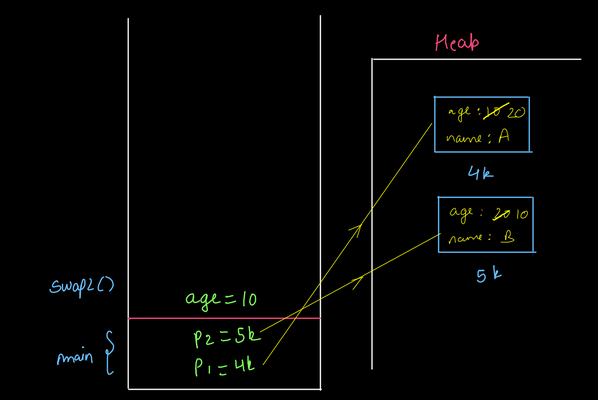 Heap
age : 10 20
name : A
4k
age : 20 10
name : B
5k
swap2()
age = 10
main
P2 = 5k
P1 = 4k